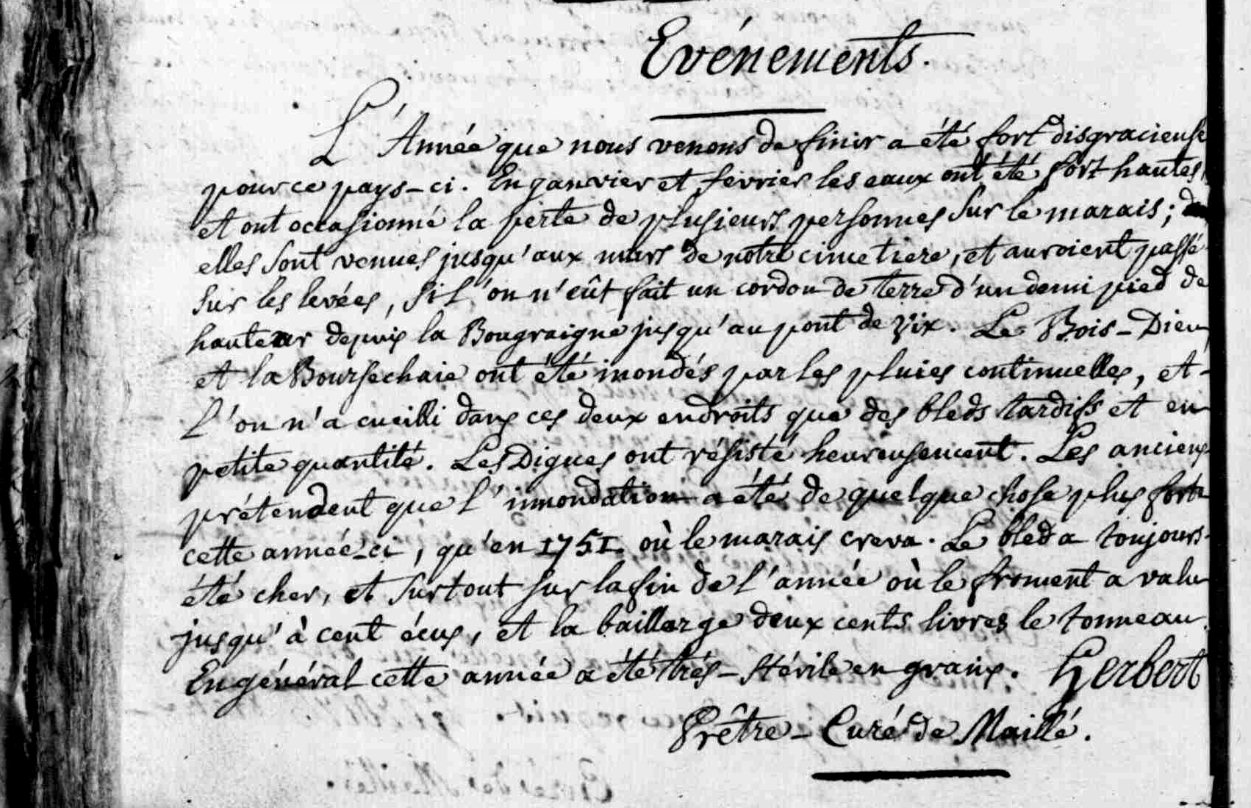 Evénements.
L'Année que nous venons de finir a été fort disgracieuse
pour ce pays-ci. En janvier et fevrier les eaux ont été fort hautes,
et ont occasionné la perte de plusieurs personnes sur le marais;
elles sont venues jusqu'aux murs de notre cimetiere, et auroient passé
sur les levées, si l'on n'eût fait un cordon de terre d'un demi pied de
hauteur depuis la Bougraigne jusqu'au pont de Vix. Le Bois-Dieu,
et la Boursechaie ont été inondés par les pluies continuelles, et
l'on n'a cueilli dans ces deux endroits que des bleds tardifs et en
petite quantité. Les Digues ont résisté heureusement. Les anciens
prétendent que l'innondation a été de quelque chose plus forte
cette année-ci, qu'en 1751 où le marais creva. Le bled a toujours
été cher, et surtout sur la fin de l'année où le froment a valu
jusqu'à cent écus, et la baillarge deux cents livres le tonneau.
En général cette année a été très-stérile en grains. Herbert
Prêtre-Curé de Maillé.